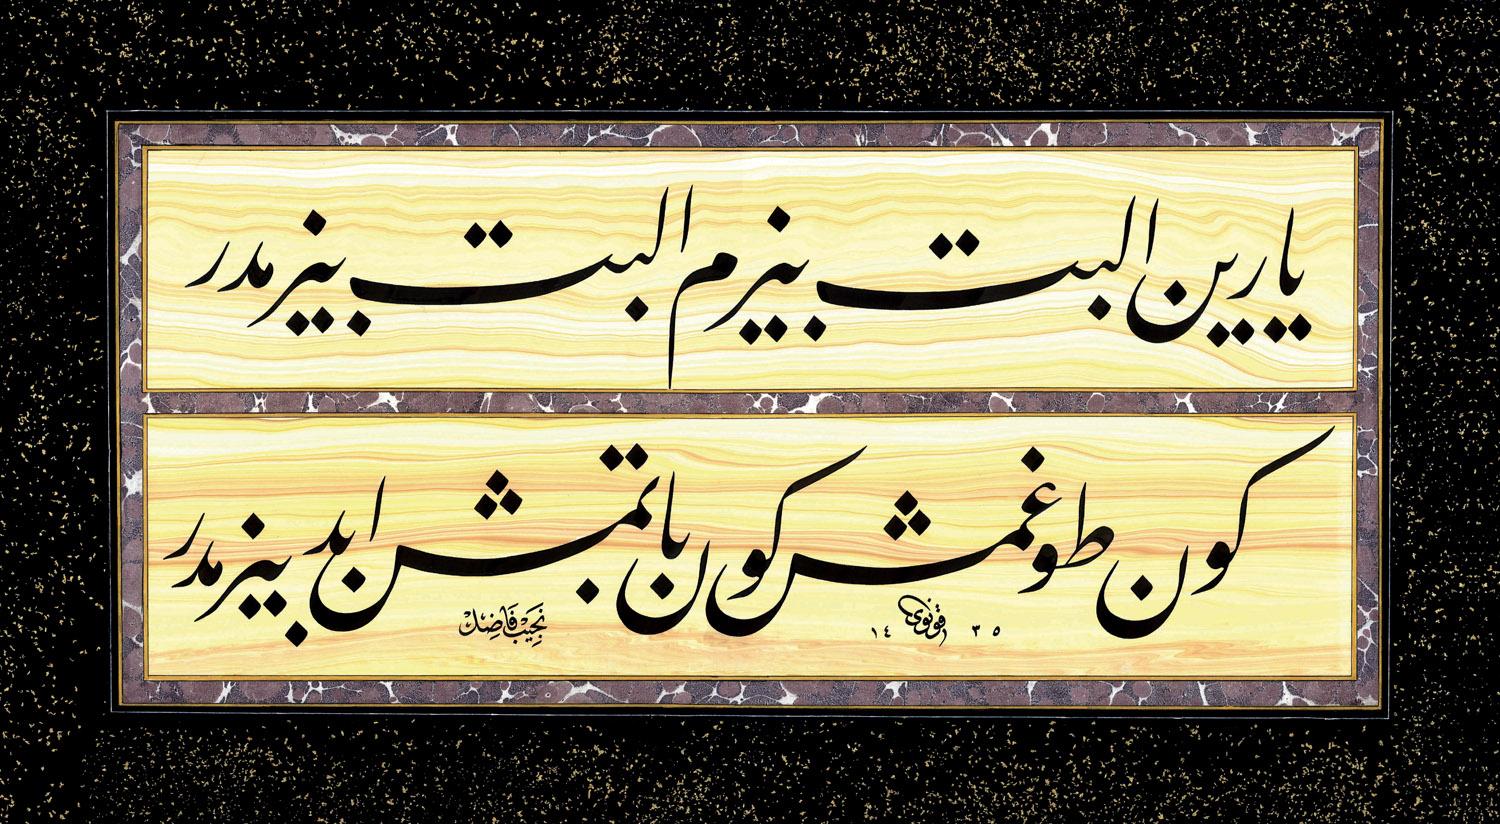 یارین البت بیزم البت بیزمدر
کون طوغمش کون باتمش ابد بیزمدر
نجیب فاضل
قونوی ١٤٣٥